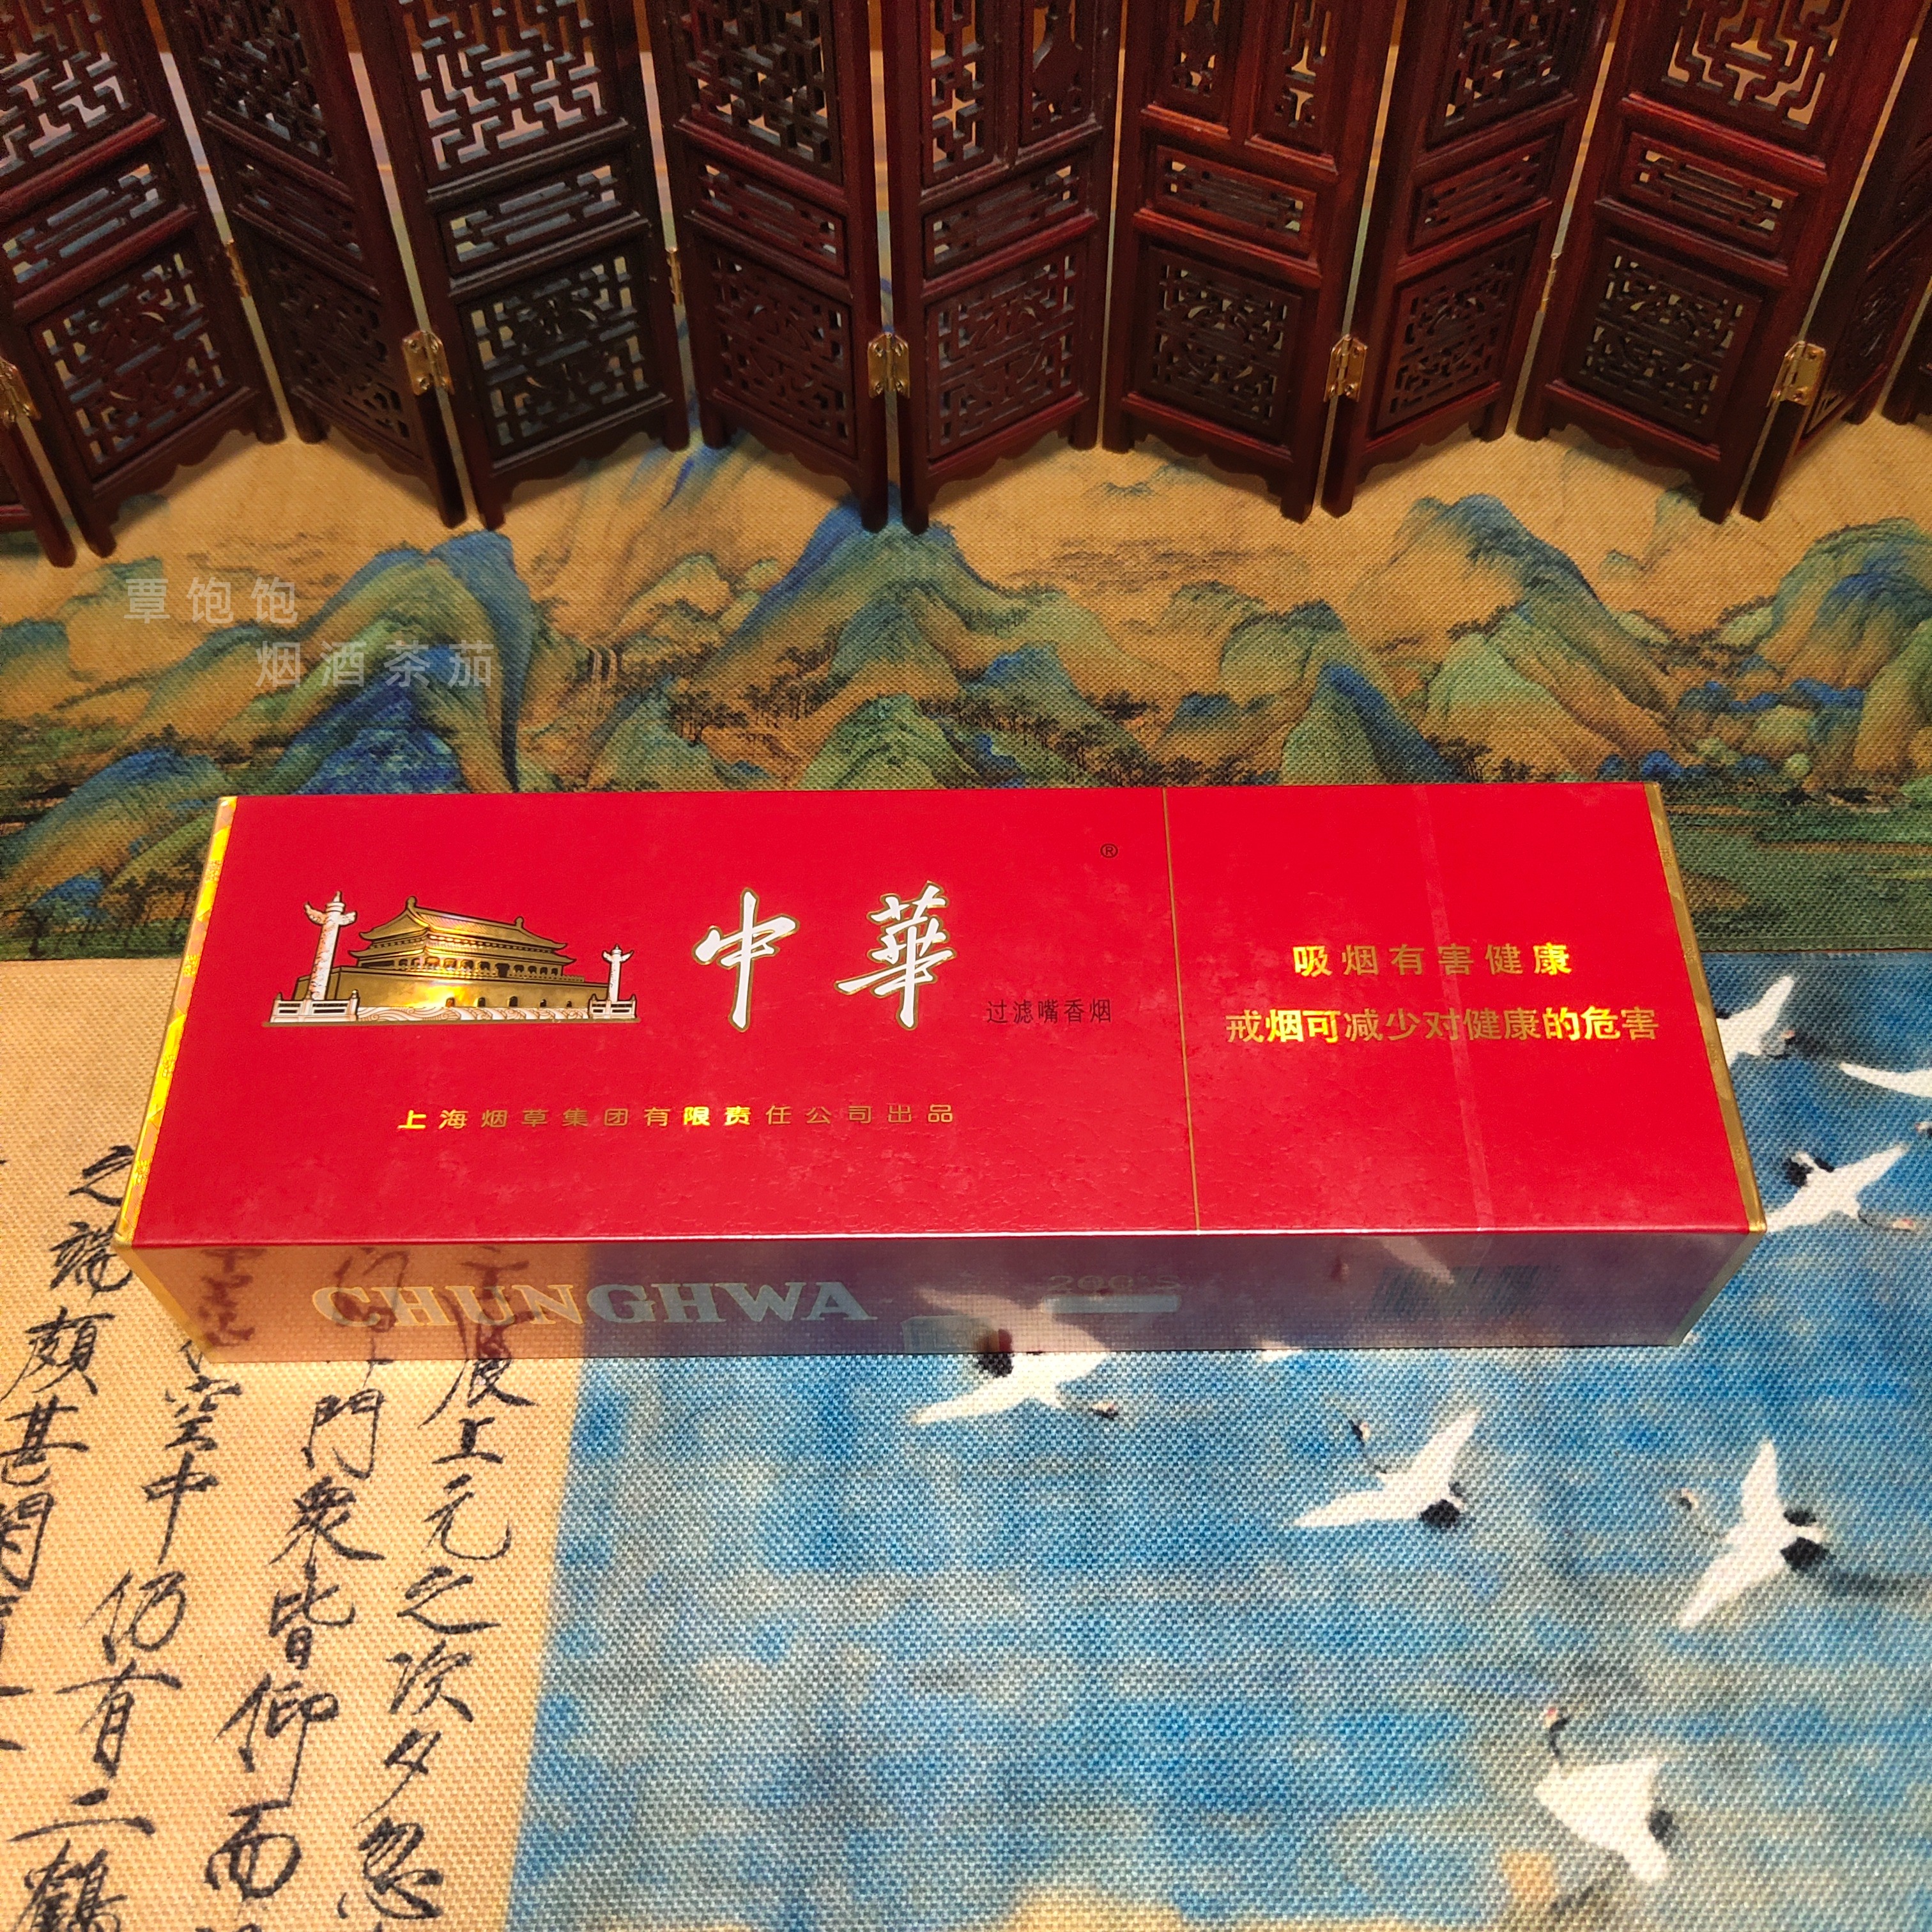 覃饱饱
烟酒茶茄
®
中華
过滤嘴香烟
上海烟草集团有限责任公司出品
吸烟有害健康
戒烟可减少对健康的危害
CHUNGHWA
200's
辰上元之次夕忽
門眾皆仰而
空中仍有二鶴
之端頗甚閑